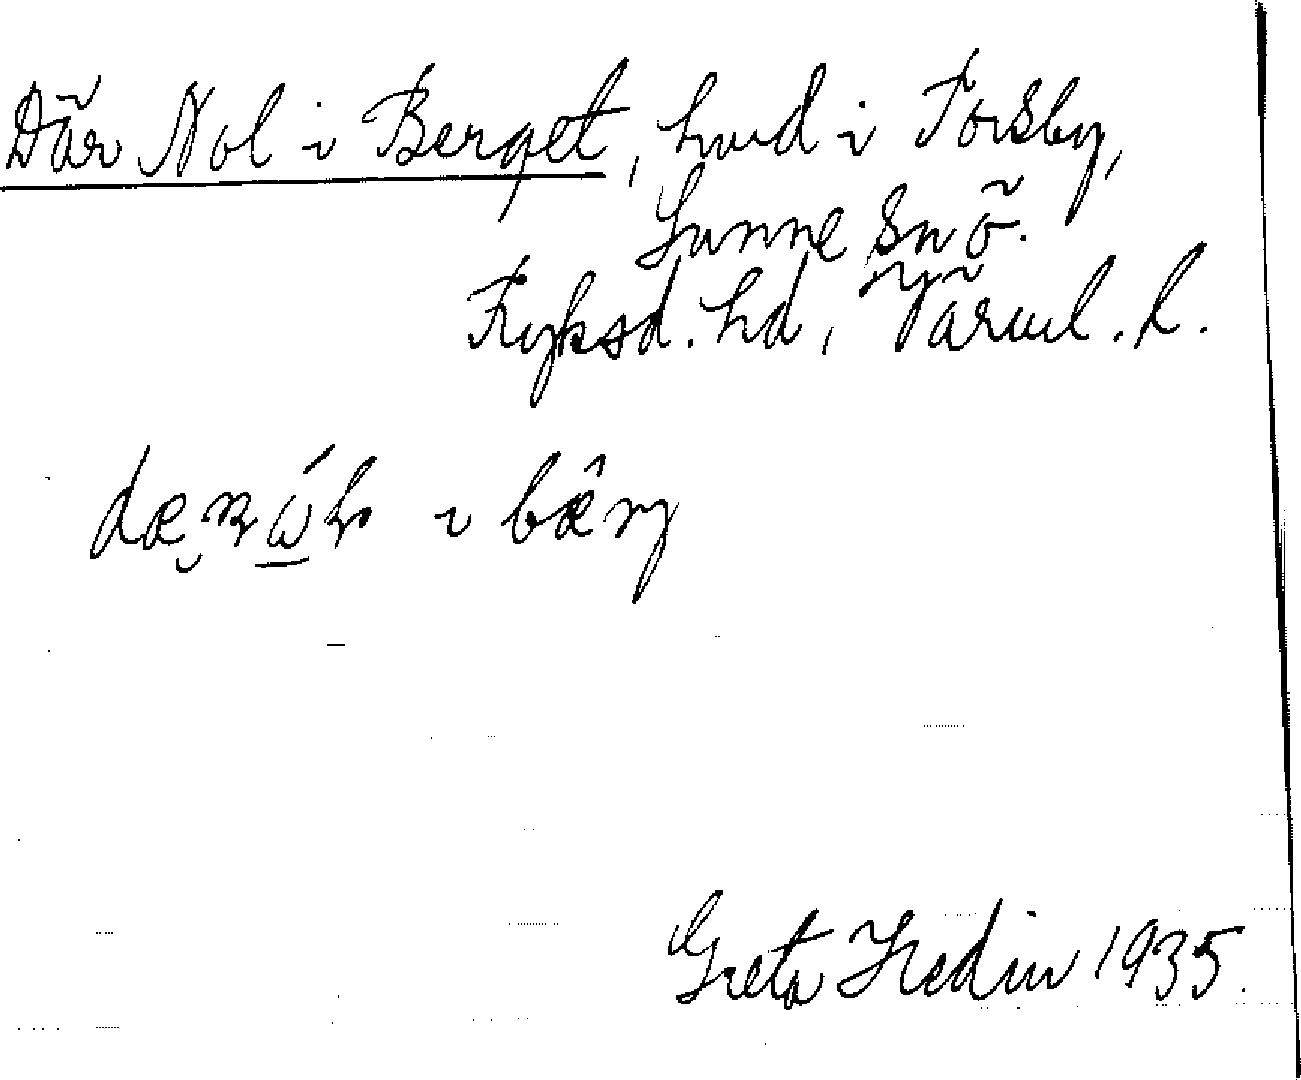 Där Nol i Berget, hmd i Torsby,
Sunne sn ö.
Fryksd. hd, Värml. l.
i bêrj
Greta Hedin 1935.